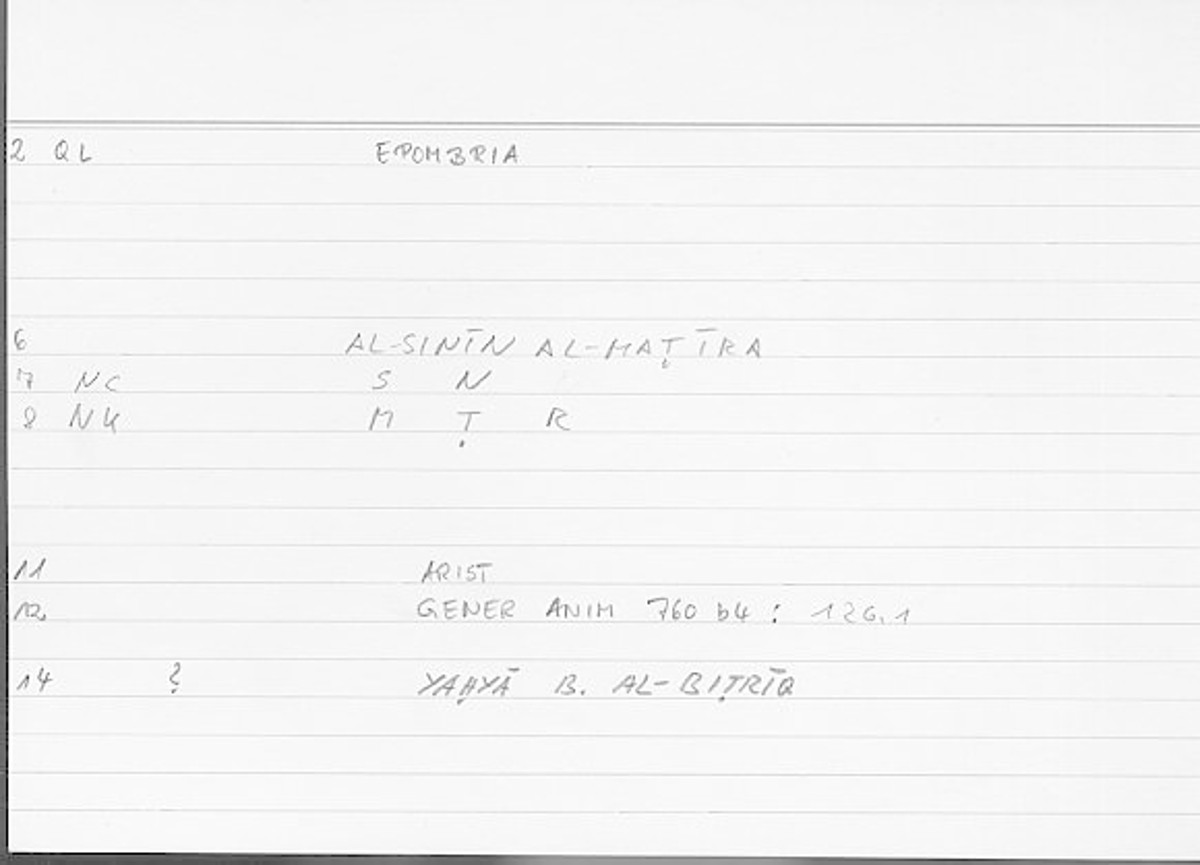 2 QL EPOMBRIA
6 AL-SINĪN AL-MAṬĪRA
7 NC S N
8 NK M Ṭ R
11 ARIST
12 GENER ANIM 760 b4 : 126.1
14 ? YAḤYĀ B. AL-BIṬRĪQ